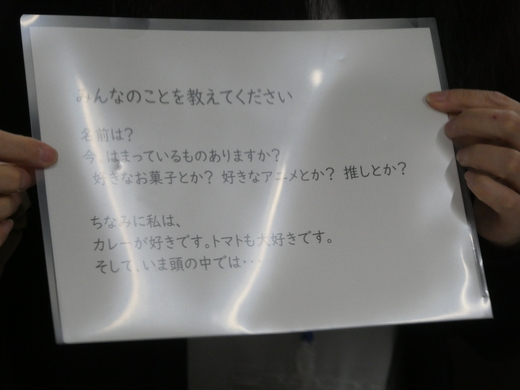 みんなのことを教えてください
名前は？
今、はまっているものありますか？
好きなお菓子とか？ 好きなアニメとか？ 推しとか？
ちなみに私は、
カレーが好きです。トマトも大好きです。
そして、いま頭の中では・・・